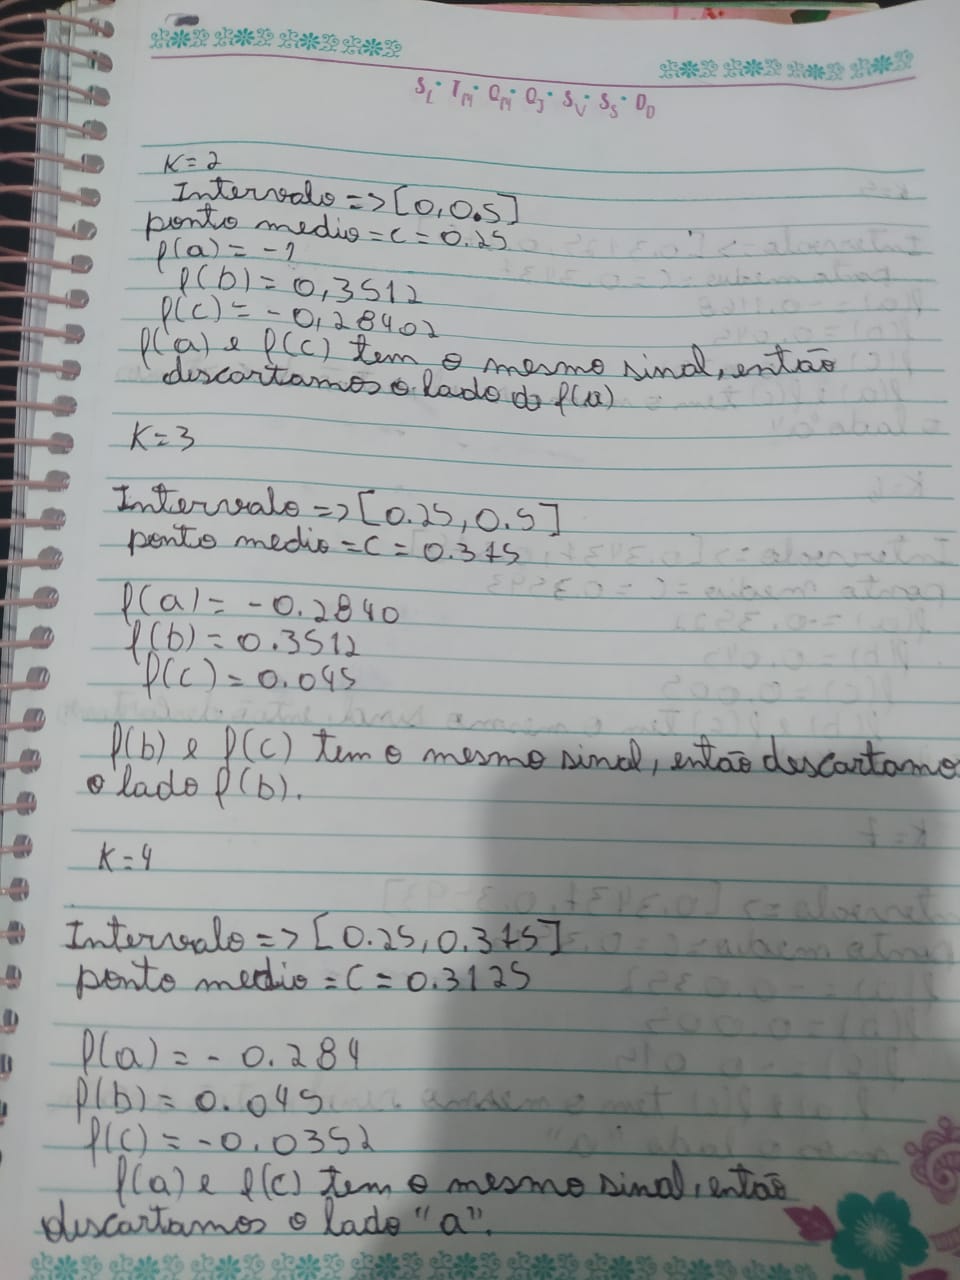 S_L · T_M · Q_M · Q_J · S_V · S_S · D_D
K=2
Intervalo => [0,0.5]
ponto medio = C = 0.25
f(a) = -1
f(b) = 0,3512
f(c) = -0,28402
f(a) e f(c) tem o mesmo sinal, então
descartamos o lado do f(a)
K=3
Intervalo => [0.25, 0.5]
ponto medio = C = 0.375
f(a) = -0.2840
f(b) = 0.3512
f(c) = 0.045
f(b) e f(c) tem o mesmo sinal, então descartamo
o lado f(b).
K=4
Intervalo => [0.25, 0.375]
ponto medio = C = 0.3125
f(a) = -0.284
f(b) = 0.045
f(c) = -0.0352
f(a) e f(c) tem o mesmo sinal, então
descartamos o lado "a".